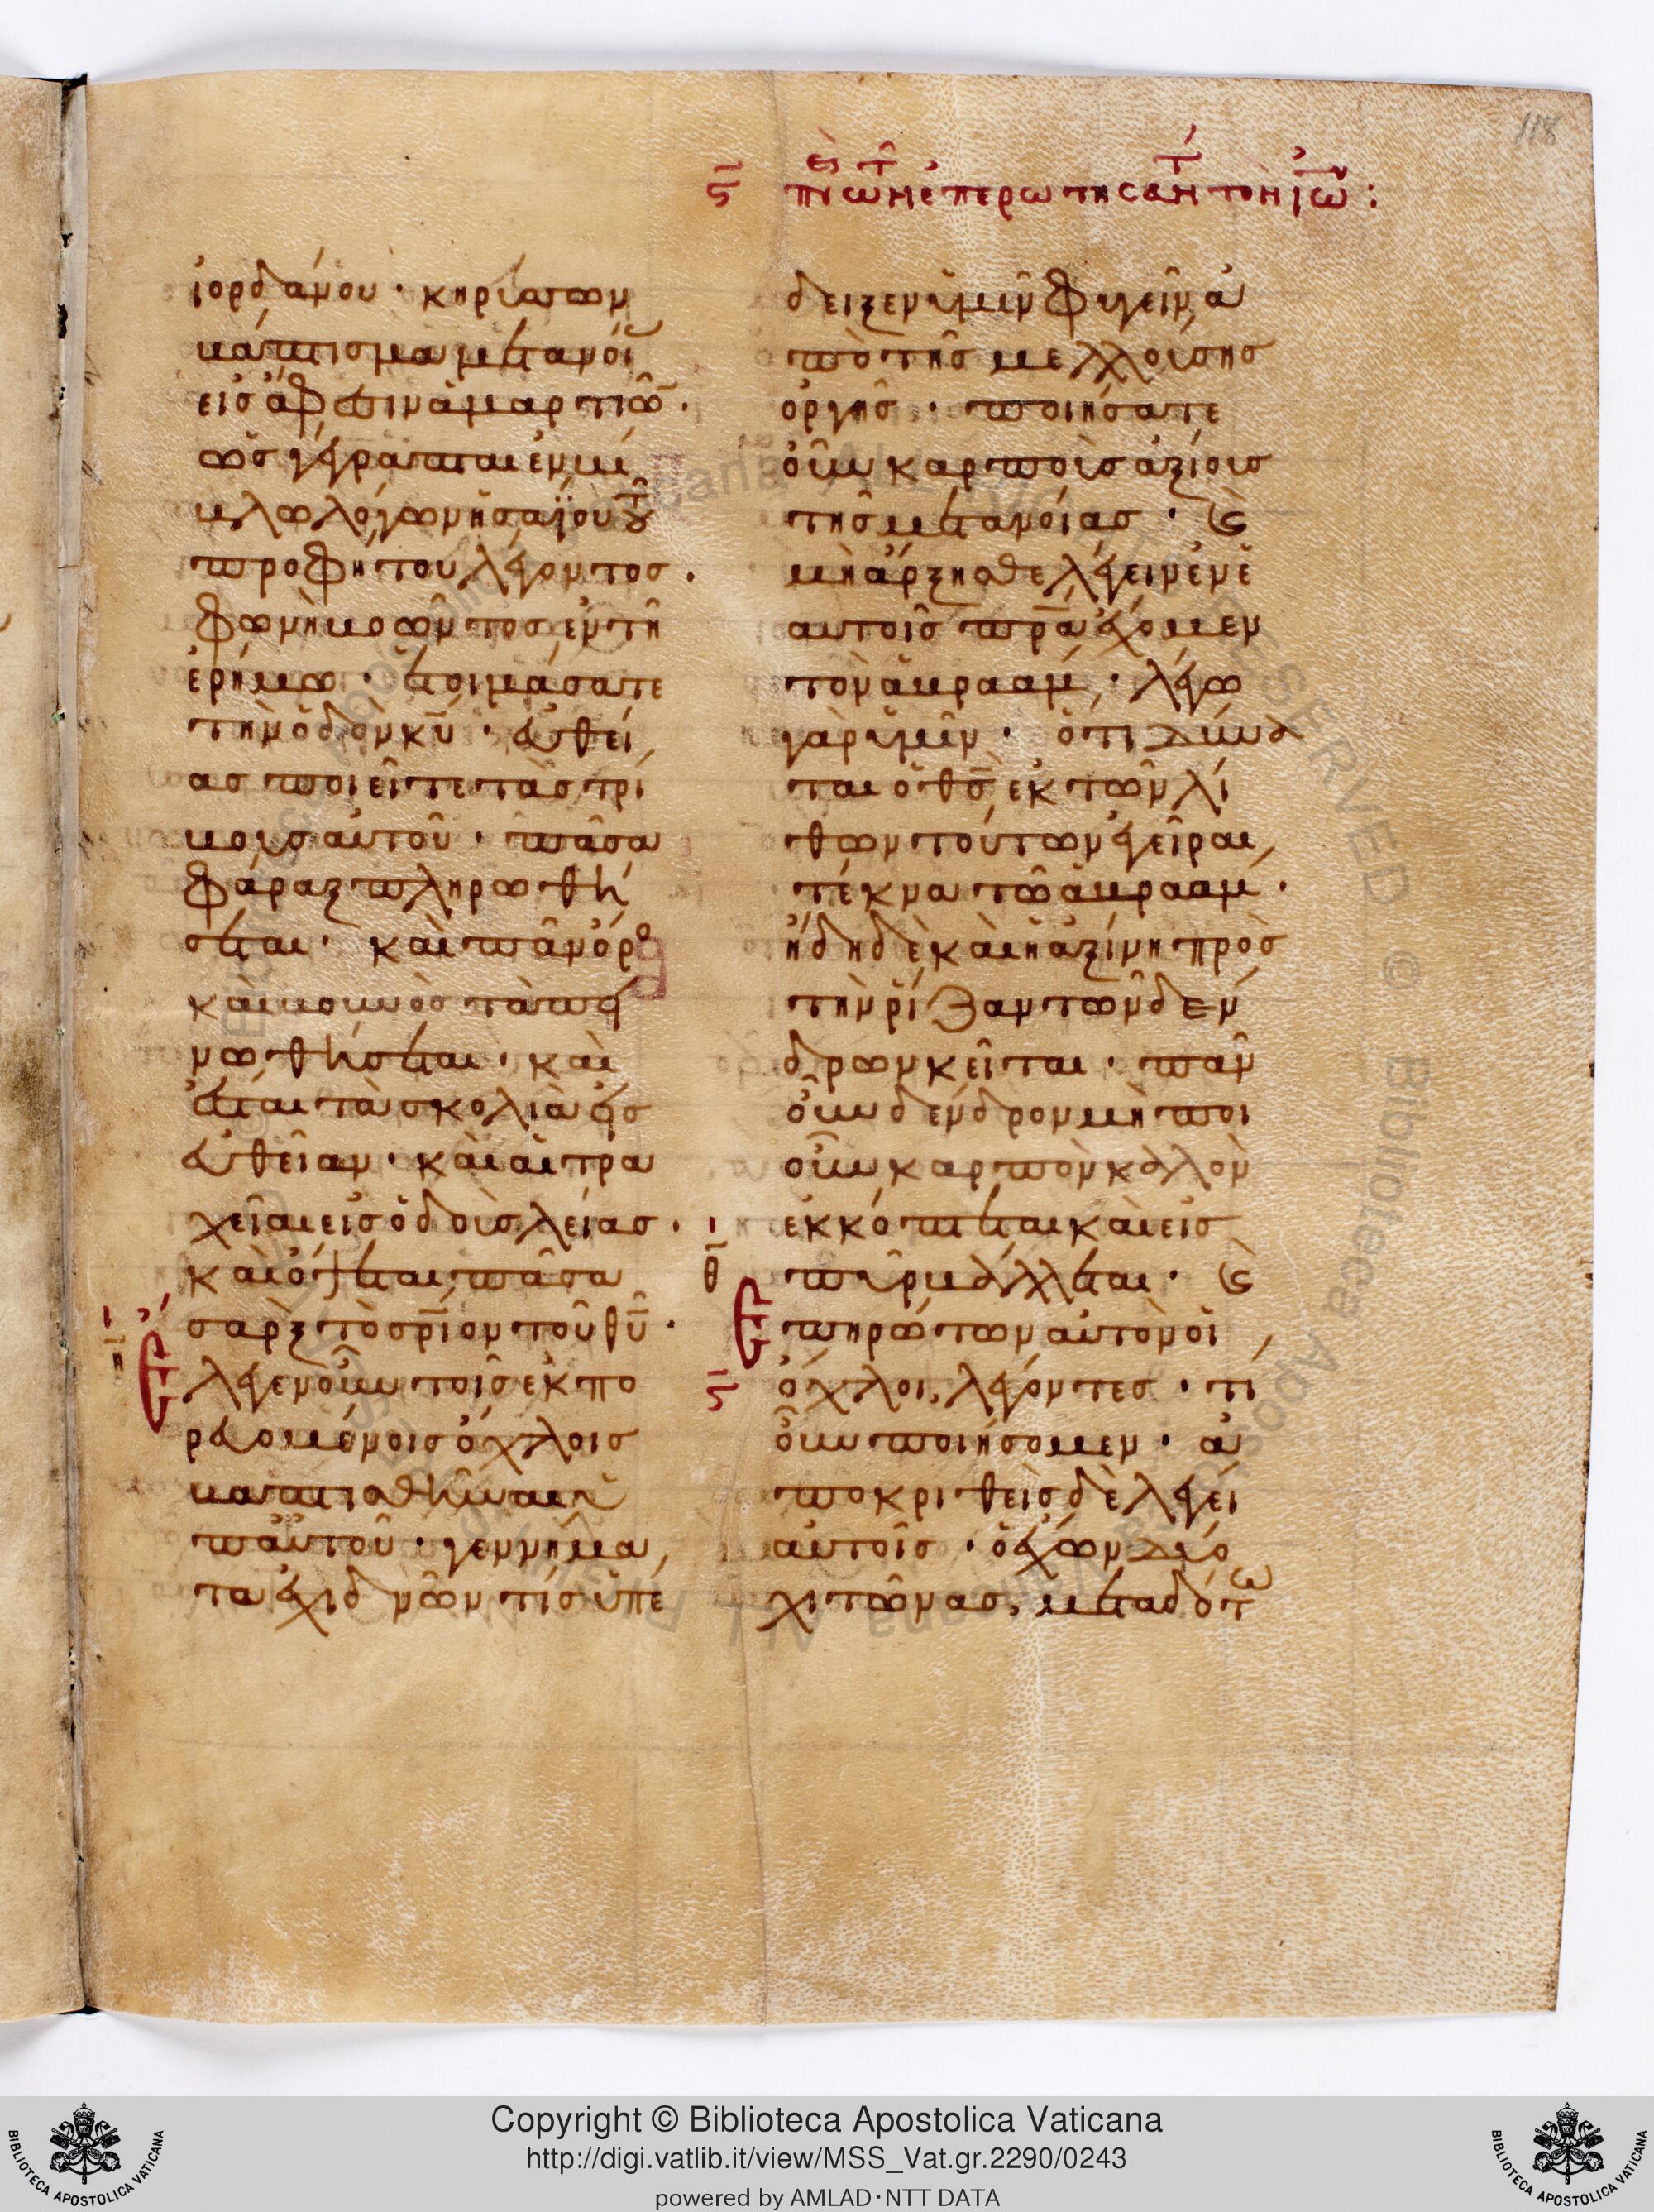 118
ς περὶ τῶν ἐπερωτησάντων τὸν ἰω:
ἰορδάνου · κηρύσσων
βάπτισμα μετανοί
εἰς ἄφεσιν ἁμαρτιῶ ·
ὡς γέγραπται ἐν βι
βλω λόγων ἡσαΐου τοῦ
προφήτου λέγοντος ·
φωνὴ βοῶντος ἐν τῆ
ἐρήμω · ἑτοιμάσατε
τὴν ὁδὸν κυ · εὐθεί
ας ποιεῖτε τὰς τρί
βους αὐτοῦ · πᾶσα
φάραξ πληρωθή
σεται · καὶ πᾶν ὄρο
καὶ βουνὸς ταπει
νωθήσεται · καὶ
ἔσται τὰ σκολιὰ εἰς
εὐθεῖαν · καὶ αἱ τρα
χεῖαι εἰς ὁδοὺς λείας ·
καὶ ὄψεται πᾶσα
σαρξ τὸ σριον τοῦ θυ ·
Ελεγεν οὖν τοῖς ἐκπο
ρευομένοις ὄχλοις
βαπτισθῆναι ὑ
π' αὐτοῦ · γεννήμα
τα ἐχιδνῶν τίς ὑπέ
δειξεν ὑμῖν φυγεῖν ἀ
πὸ τῆς μελλούσης
ὀργῆς · ποιήσατε
οὖν καρποὺς ἀξίους
τῆς μετανοίας · καὶ
μὴ ἄρξησθε λέγειν ἐν ἑ
αυτοῖς πρα ἔχομεν
τὸν ἀβραάμ · λέγω
γὰρ ὑμῖν · ὅτι δύνα
ται ὁ θς ἐκ τῶν λί
θων τούτων ἐγεῖραι
τέκνα τῶ ἀβραάμ ·
ἤδη δὲ καὶ ἡ ἀξίνη πρὸς
τὴν ῥίζαν τῶν δέν
δρων κεῖται · πᾶν
οὖν δένδρον μὴ ποι
οῦν καρπὸν καλὸν
ἐκκόπτεται καὶ εἰς
πῦρ βάλλεται · καὶ
Επηρώτων αὐτὸν οἱ
ὄχλοι, λέγοντες · τί
οὖν ποιήσομεν · ἀ
ποκριθεὶς δὲ λέγει
αὐτοῖς · ὁ ἔχων δύο
χιτῶνας, μεταδότω
Copyright © Biblioteca Apostolica Vaticana
http://digi.vatlib.it/view/MSS_Vat.gr.2290/0243
powered by AMLAD·NTT DATA
BIBLIOTECA APOSTOLICA VATICANA
BIBLIOTECA APOSTOLICA VATICANA